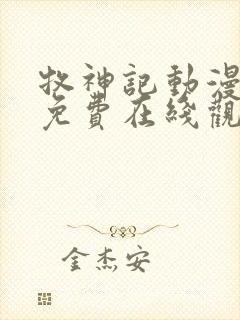 牧神記動漫
免費在綫觀
金杰安